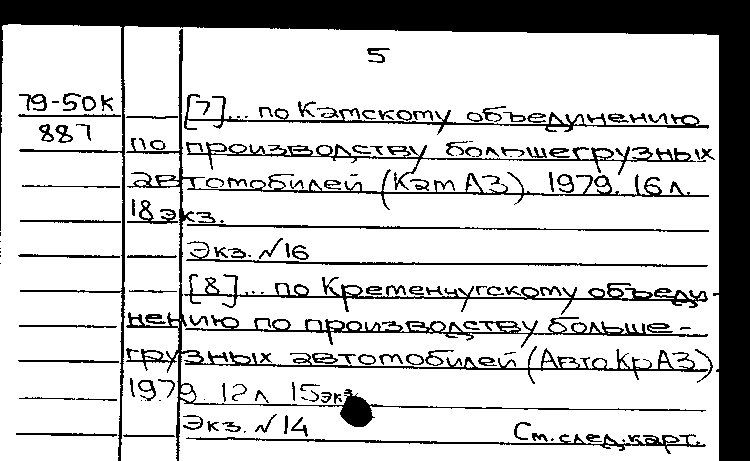 5
79-50к
887
[7]... по Камскому объединению
по производству большегрузных
автомобилей (КамАЗ). 1979. 16 л.
18 экз.
Экз. №16
[8]... по Кременчугскому объеди-
нению по производству больше-
грузных автомобилей (АвтоКрАЗ).
1979. 12 л 15экз.
Экз. №14
См. след. карт.